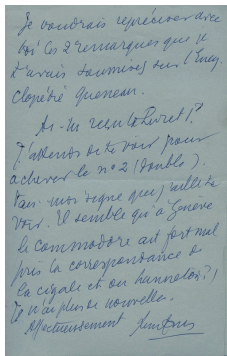 Je voudrais repréciser avec
toi les 2 remarques que je
t'avais soumises sur l'Ency
clopédie Queneau.
As-tu reçu le livret ?
J'attends de te voir pour
achever le n° 2 (double).
Fais-moi signe que j'aille te
voir. Il semble qu'à Genève
le commodore ait fort mal
pris la correspondance de
la cigale et du hanneton ?)
Je n'ai plus de nouvelles.
Affectueusement